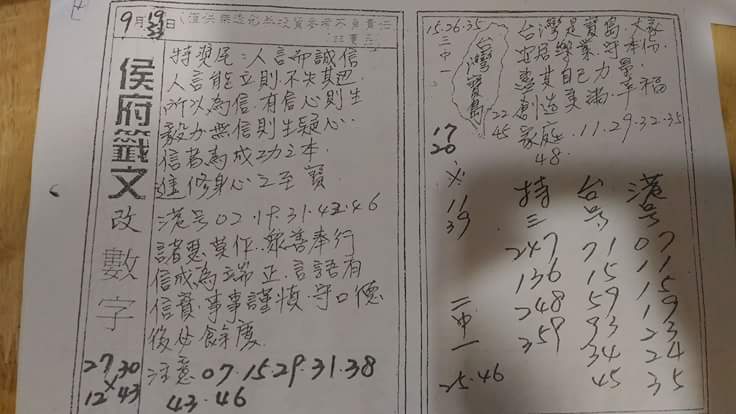 9月19日
侯府籤文
改數字
27 30
12 × 43
特獎尾：人言而誠信
人言能立則不失其四
所以為信．有信心則生
毅力無信則生疑心．
信者為成功之本
進修身心之至寶
港号 07．19．31．42．46
諸惡莫作．眾善奉行
信成為端正．言語有
信實．事事謹慎．守口德
後必餘慶．
注意 07．15．29．31．38
43．46
15．26．35
三中一
台灣寶島
台灣是寶島．大家
安居樂業．守本份．
憑其自己力量
創造美滿．幸福
家庭．11．29．32．35
48．
22
45
17
20
11
39
二中一
25．46
特三
247
136
248
359
台号
71
15
59
93
34
45
港号
07
11
15
19
23
24
35